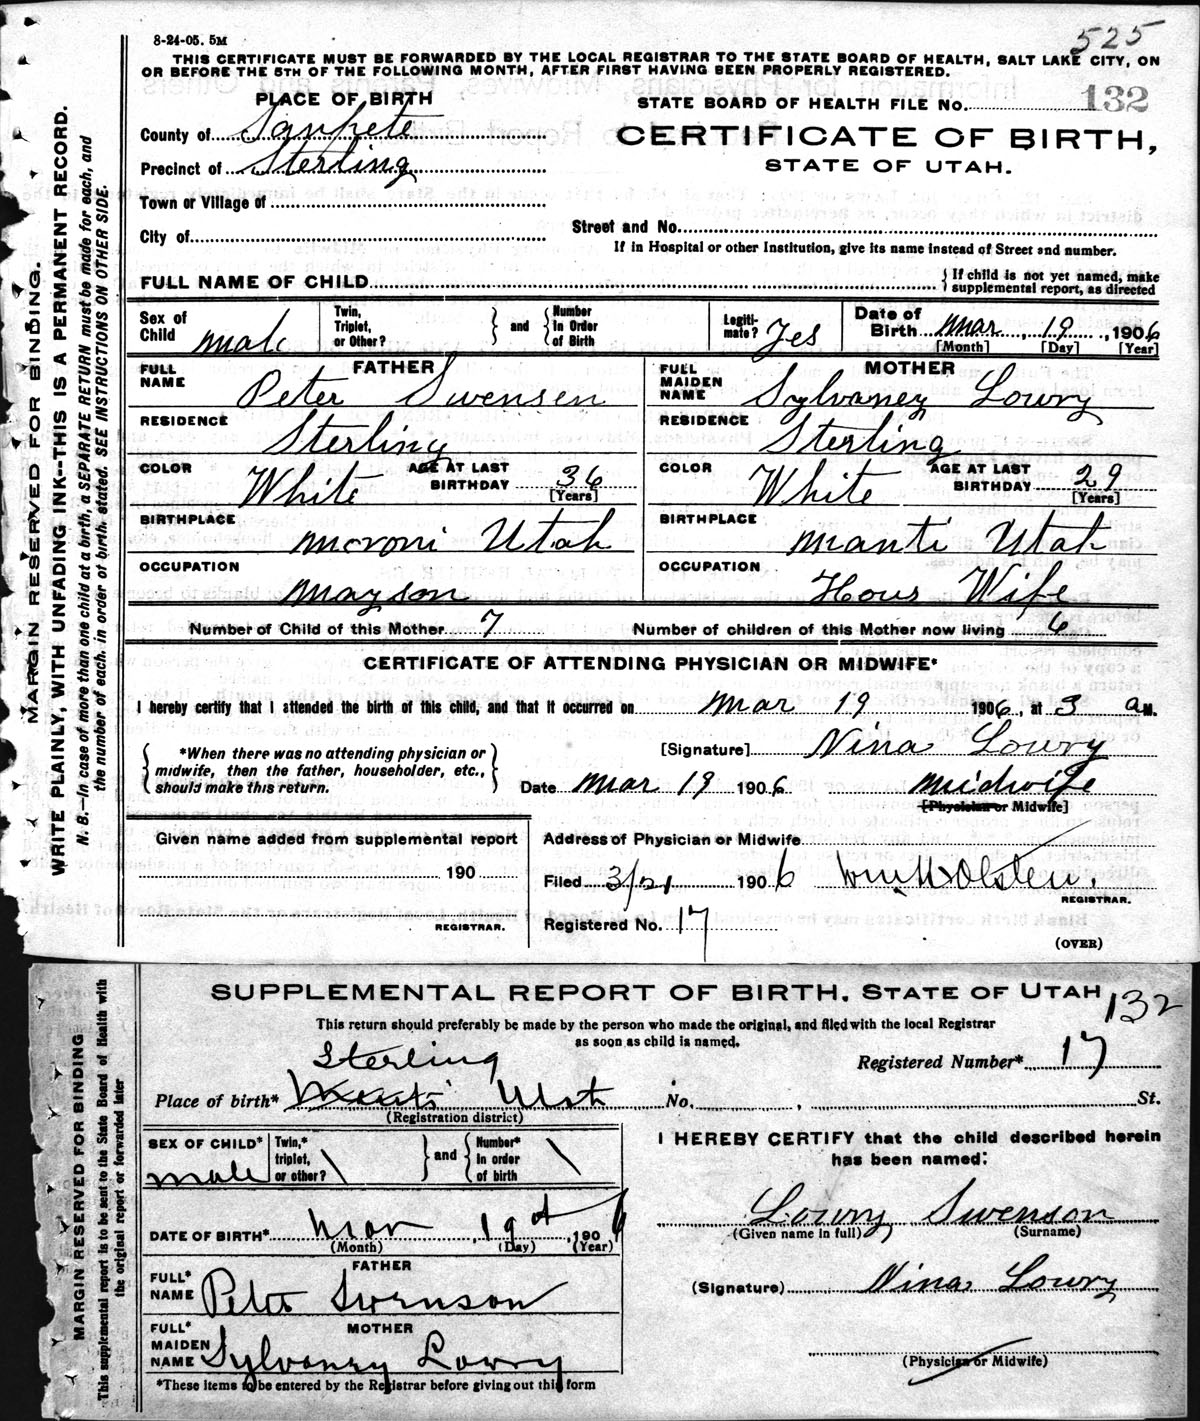 525
8-24-05. 5M
THIS CERTIFICATE MUST BE FORWARDED BY THE LOCAL REGISTRAR TO THE STATE BOARD OF HEALTH, SALT LAKE CITY, ON
OR BEFORE THE 5TH OF THE FOLLOWING MONTH, AFTER FIRST HAVING BEEN PROPERLY REGISTERED.
PLACE OF BIRTH
STATE BOARD OF HEALTH FILE No. 132
County of Sanpete
CERTIFICATE OF BIRTH,
Precinct of Sterling
STATE OF UTAH.
Town or Village of
City of
Street and No.
If in Hospital or other Institution, give its name instead of Street and number.
FULL NAME OF CHILD
{If child is not yet named, make
supplemental report, as directed
Sex of Child male Twin, Triplet, or Other? } and { Number in Order of Birth Legiti-mate? Yes Date of Birth Mar 19 1906
[Month] [Day] [Year]
FATHER MOTHER
FULL NAME Peter Swensen FULL MAIDEN NAME Sylvaney Lowry
RESIDENCE Sterling RESIDENCE Sterling
COLOR White AGE AT LAST BIRTHDAY 36 [Years] COLOR White AGE AT LAST BIRTHDAY 29 [Years]
BIRTHPLACE Moroni Utah BIRTHPLACE Manti Utah
OCCUPATION Mayson OCCUPATION Hous Wife
Number of Child of this Mother 7 Number of children of this Mother now living 6
CERTIFICATE OF ATTENDING PHYSICIAN OR MIDWIFE*
I hereby certify that I attended the birth of this child, and that it occurred on Mar 19 1906, at 3 a M.
{ *When there was no attending physician or midwife, then the father, householder, etc., should make this return. }
[Signature] Nina Lowry
Date Mar 19 1906 Midwife
[Physician or Midwife]
Given name added from supplemental report
190
REGISTRAR.
Address of Physician or Midwife
Filed 3/21 1906 Wm H Olsten.
REGISTRAR.
Registered No. 17
(OVER)
MARGIN RESERVED FOR BINDING.
WRITE PLAINLY, WITH UNFADING INK--THIS IS A PERMANENT RECORD.
N. B.--In case of more than one child at a birth, a SEPARATE RETURN must be made for each, and
the number of each, in order of birth, stated. SEE INSTRUCTIONS ON OTHER SIDE.
SUPPLEMENTAL REPORT OF BIRTH. STATE OF UTAH 132
This return should preferably be made by the person who made the original, and filed with the local Registrar
as soon as child is named.
Registered Number* 17
Sterling
Place of birth* Manti Utah No. , St.
(Registration district)
SEX OF CHILD* male Twin,* triplet, or other? \ } and { Number* in order of birth \
I HEREBY CERTIFY that the child described herein
has been named:
Lowry Swenson
(Given name in full) (Surname)
DATE OF BIRTH* Mar , 19th , 1906
(Month) (Day) (Year)
(Signature) Nina Lowry
FATHER
FULL* NAME Peter Swenson
MOTHER
FULL* MAIDEN NAME Sylvaney Lowry
(Physician or Midwife)
*These items to be entered by the Registrar before giving out this form
MARGIN RESERVED FOR BINDING
This supplemental report is to be sent to the State Board of Health with
the original report or forwarded later